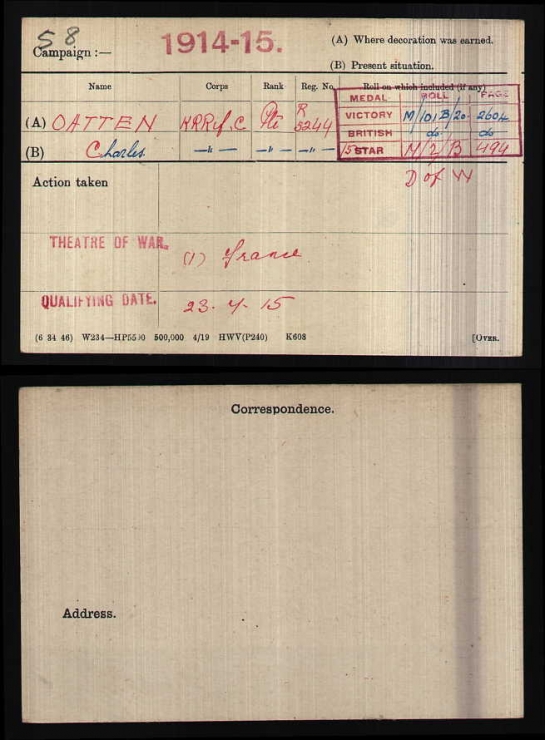 58
Campaign :— 1914-15. (A) Where decoration was earned.
(B) Present situation.
Name Corps Rank Reg. No. Roll on which included (if any)
MEDAL ROLL PAGE
(A) OATTEN KRRif.C Pte R 3244 VICTORY M/101B/20 2604
BRITISH do do
(B) Charles —"— —"— —"— 15 STAR M/2/B 494
Action taken D of W
THEATRE OF WAR. (1) France
QUALIFYING DATE. 23. 4. 15
(6 34 46) W234—HP5500 500,000 4/19 HWV(P240) K608 [OVER.
Correspondence.
Address.